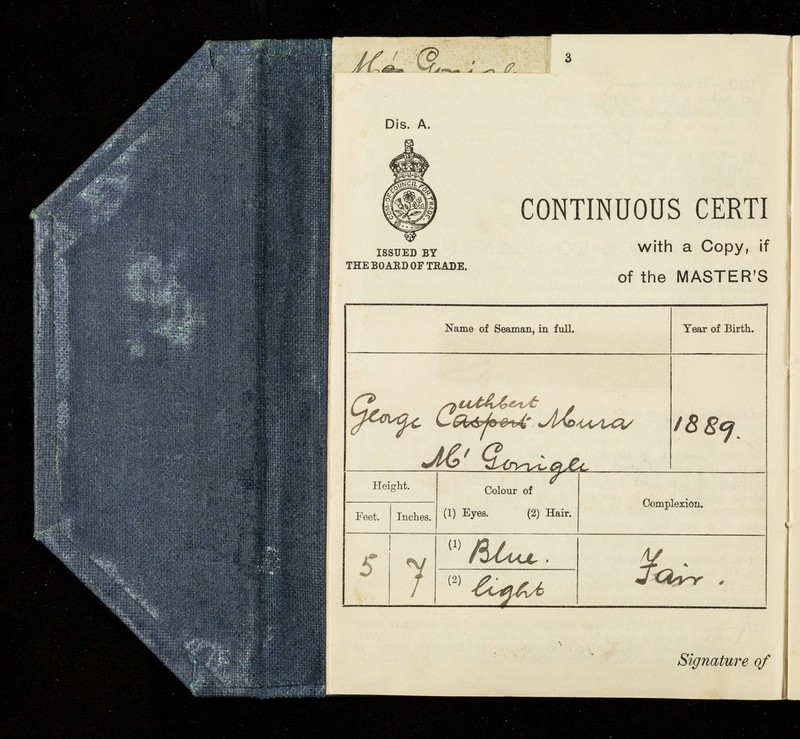 Mc Gonigle
3
Dis. A.
ISSUED BY
THE BOARD OF TRADE.
CONTINUOUS CERTI
with a Copy, if
of the MASTER'S
Name of Seaman, in full.
Year of Birth.
uthbert
George Caspert Mura
1889.
Mc' Gonigle
Height.
Colour of
Complexion.
Feet.
Inches.
(1) Eyes.
(2) Hair.
5
7
(1) Blue.
Fair.
(2) light
Signature of